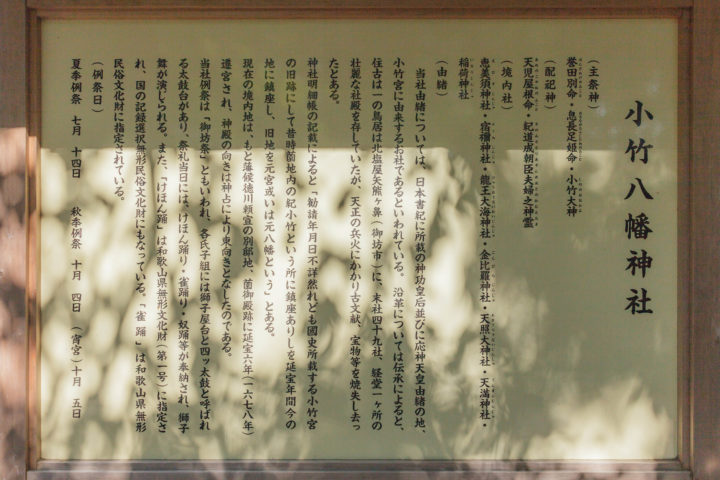 小竹八幡神社
（主祭神）
誉田別命・息長足姫命・小竹大神
（配祀神）
天児屋根命・紀道成朝臣夫婦之神霊
（境内社）
恵美須神社・宿禰神社・龍王大海神社・金比羅神社・天照大神社・天満神社・
稲荷神社
（由緒）
当社由緒については、日本書紀に所載の神功皇后並びに応神天皇由緒の地、
小竹宮に由来するお社であるといわれている。沿革については伝承によると、
往古は一の鳥居は北塩屋矢熊ヶ鼻（御坊市）に、末社四十九社、経堂一ヶ所の
壮麗な社殿を存していたが、天正の兵火にかかり古文献、宝物等を焼失し去っ
たとある。
神社明細帳の記載によると「勧請年月日不詳然れども國史所載する小竹宮
の旧跡にして昔時薗地内の紀小竹という所に鎮座ありしを延宝年間今の
地に鎮座し、旧地を元宮或いは元八幡という」とある。
現在の境内地は、もと藩候徳川頼宣の別邸地、薗御殿跡に延宝六年（一六七八年）
遷宮され、神殿の向きは神占により東向きとなしたのである。
当社例祭は「御坊祭」ともいわれ、各氏子組には獅子屋台と四ッ太鼓と呼ばれ
る太鼓台があり、祭礼当日には、けほん踊り・雀踊り・奴踊等が奉納され、獅子
舞が演じられる。また、「けほん踊」は和歌山県無形文化財（第一号）に指定さ
れ、国の記録選択無形民俗文化財にもなっている。「雀踊」は和歌山県無形
民俗文化財に指定されている。
（例祭日）
夏季例祭 七月 十四日 秋季例祭 十月 四日（宵宮）十月 五日